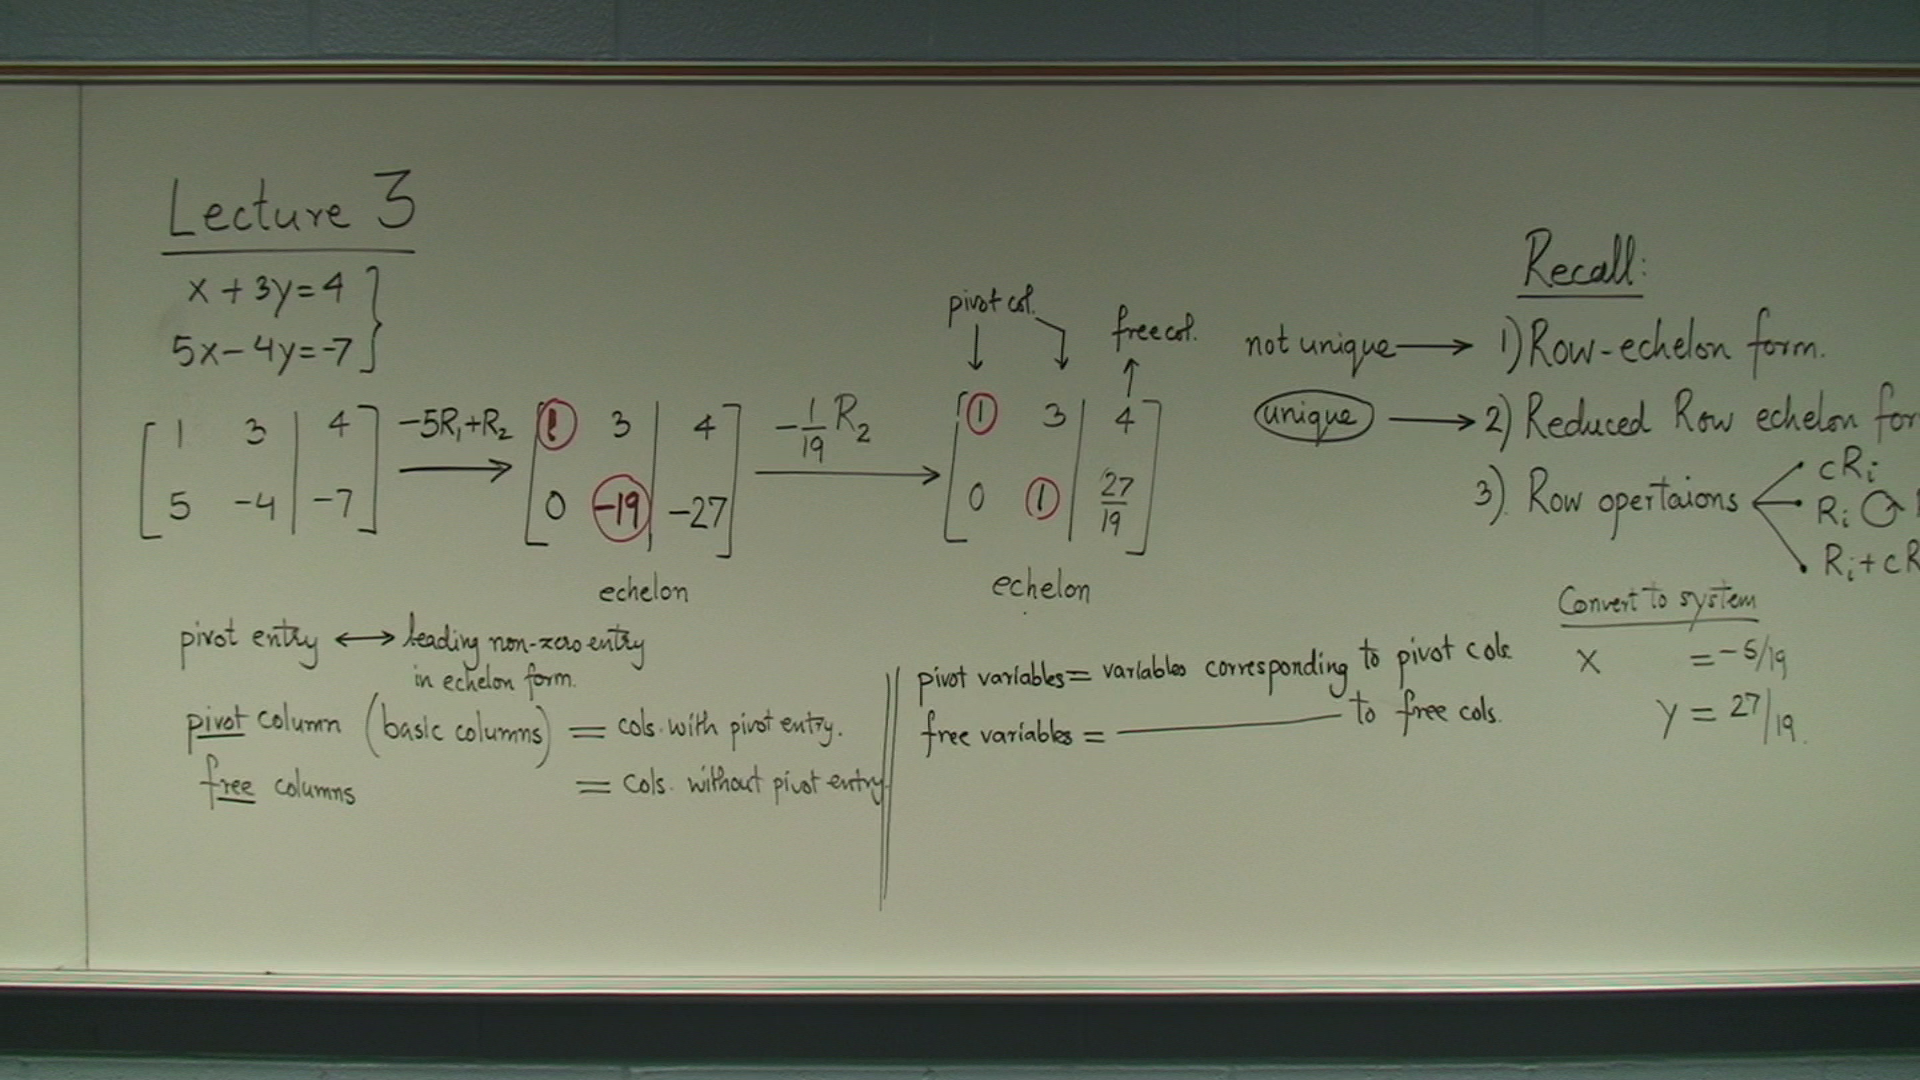 Lecture 3
x + 3y = 4
5x - 4y = -7
1 3 4
5 -4 -7
-5R₁+R₂
1 3 4
0 -19 -27
echelon
-1/19 R₂
pivot col.
free col.
1 3 4
0 1 27/19
echelon
pivot entry ↔ leading non-zero entry
in echelon form.
pivot column (basic columns) = cols. with pivot entry.
free columns = cols. without pivot entry
pivot variables = variables corresponding to pivot cols.
free variables = ——— to free cols.
Recall:
not unique → 1) Row-echelon form.
unique → 2) Reduced Row echelon for
3). Row opertaions
cRᵢ
Rᵢ
Rᵢ + cR
Convert to system
x = -5/19
y = 27/19.